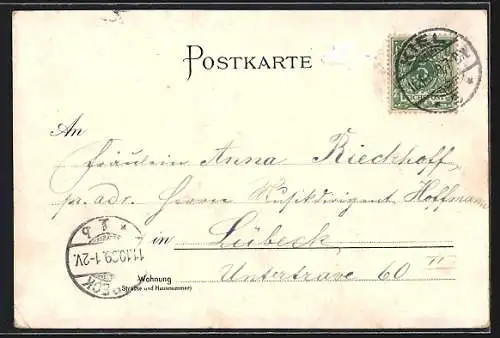 POSTKARTE
An
Fräulein Anna Rieckhoff,
pr. adr. Herrn Musikdirigent Hoffmann
in Lübeck
Untertrave 60 II
Wohnung
(Straße und Hausnummer)
KIEL
11.10.99.1-2V.